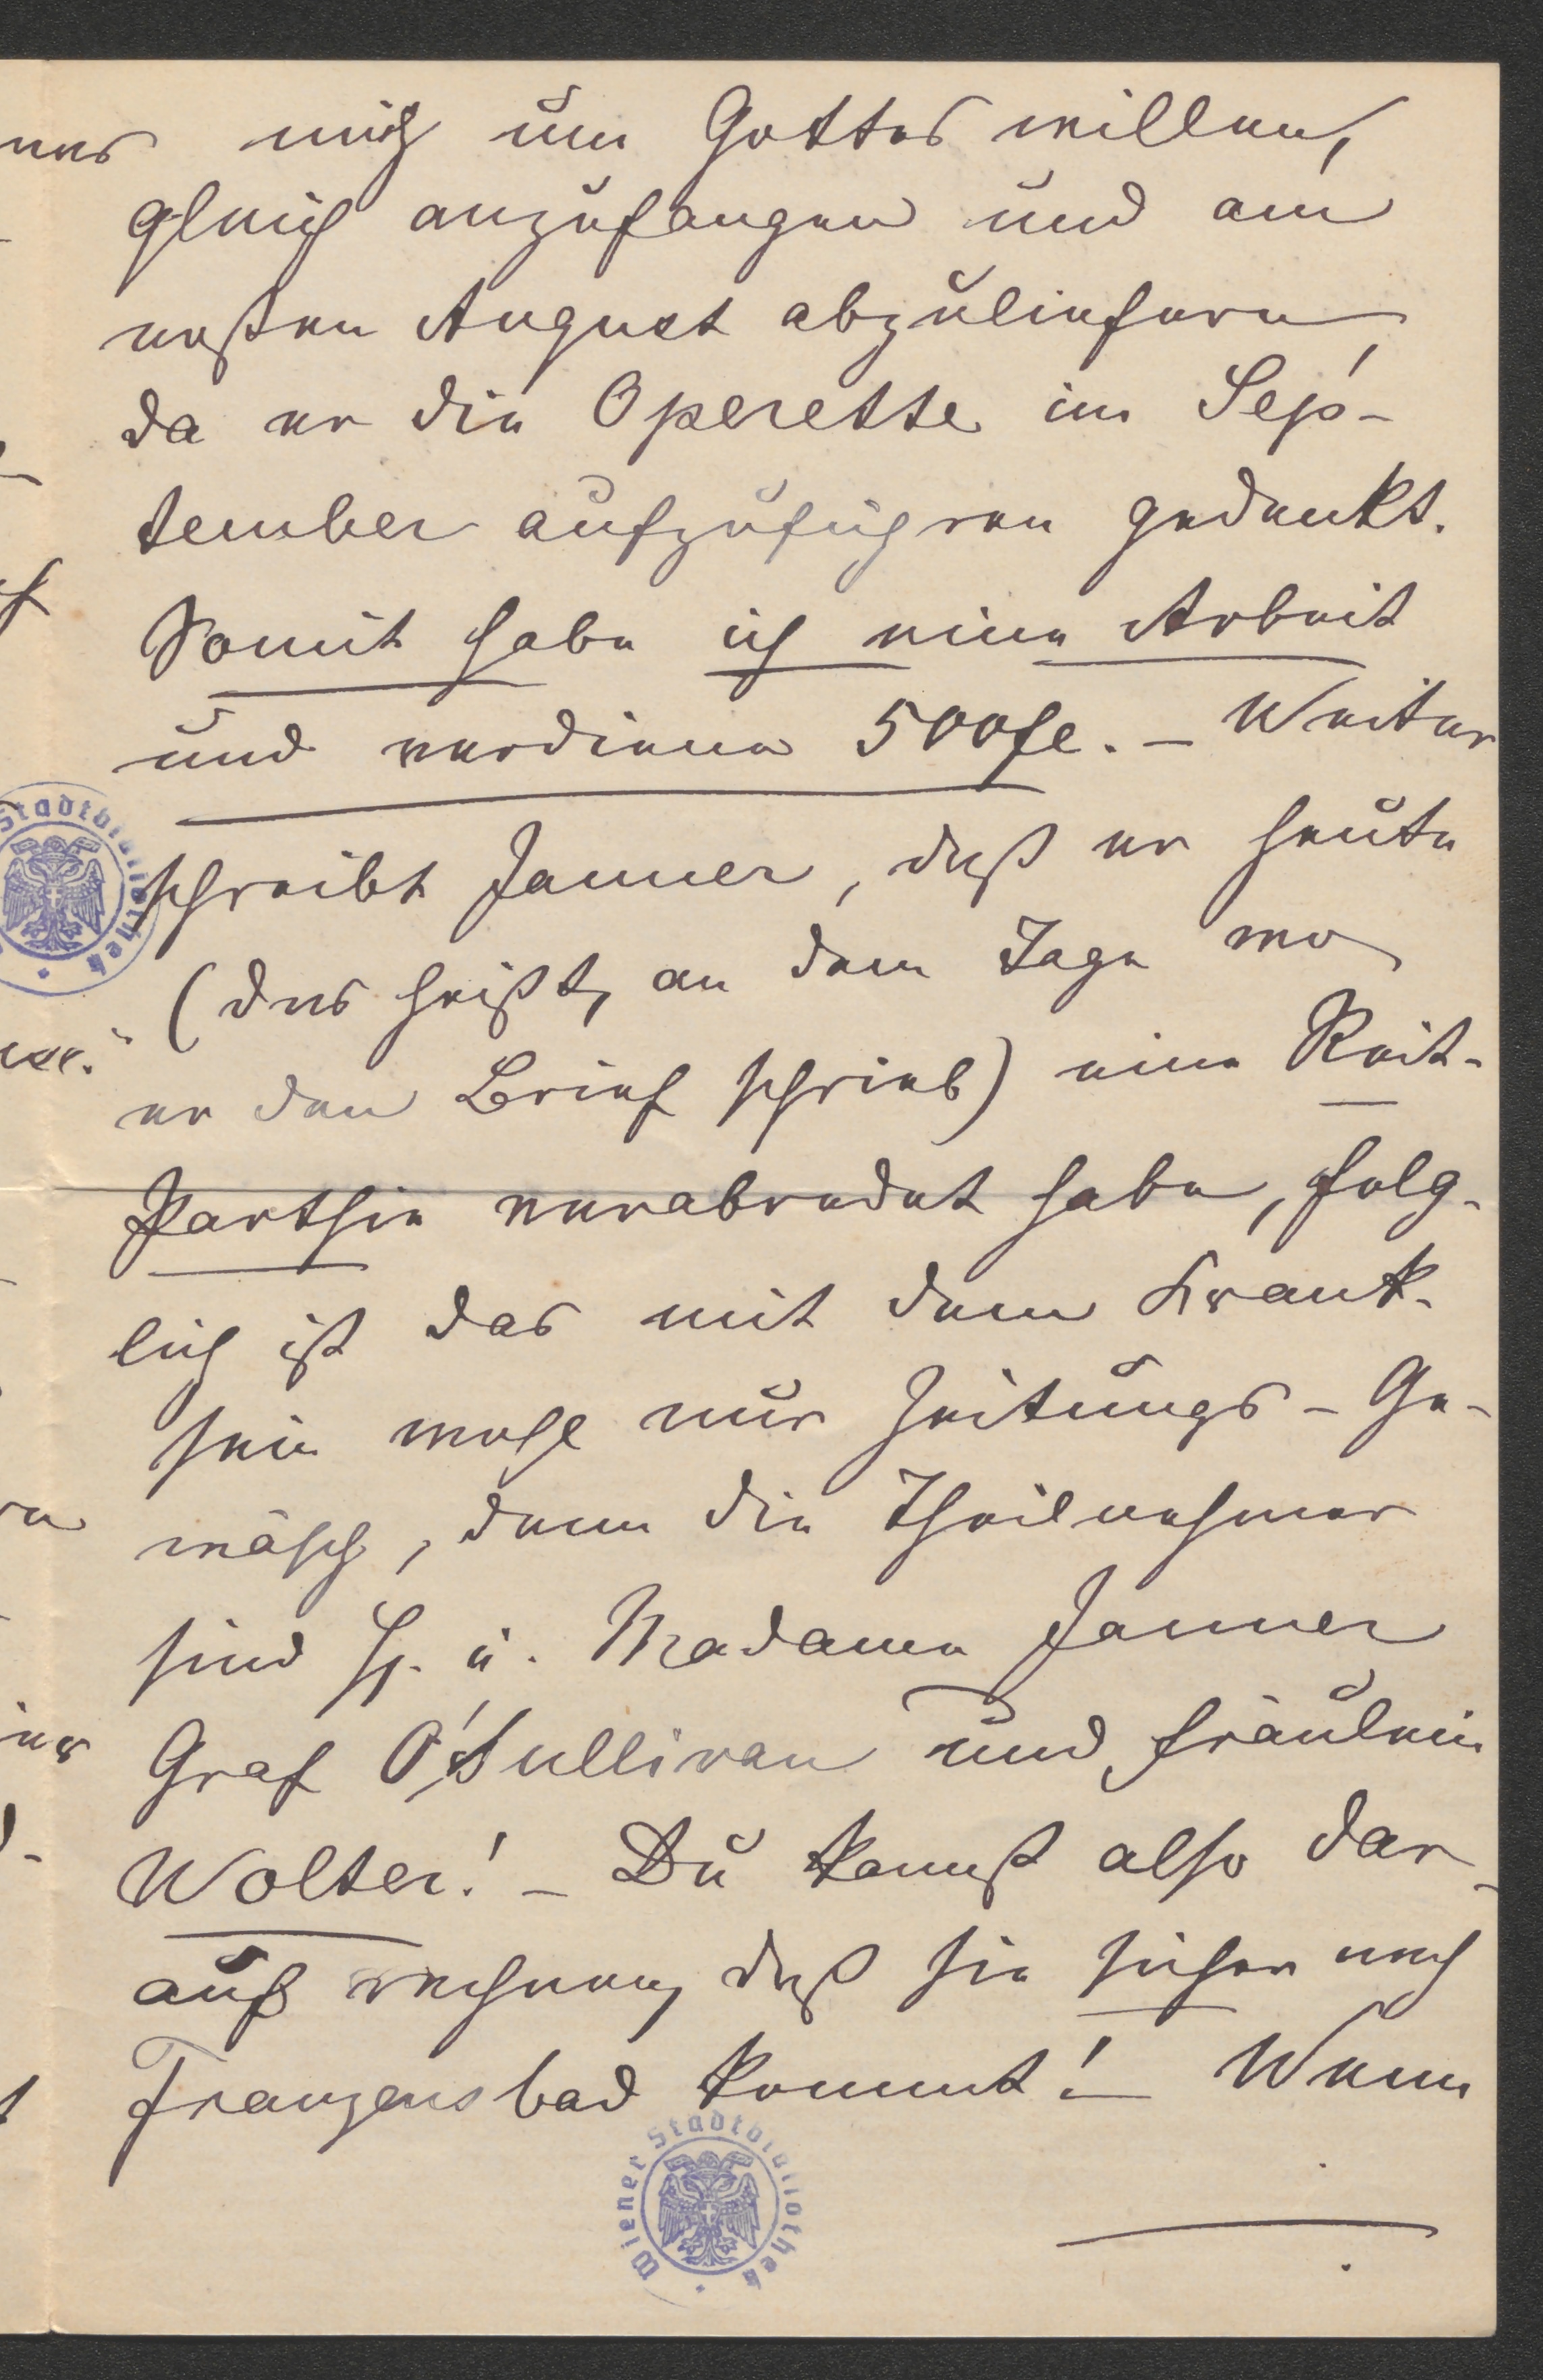 mich um Gottes willen,
gleich anzufangen und am
ersten August abzuliefern,
da er die Operette im Sep-
tember aufzuführen gedenkt.
Somit habe ich eine Arbeit
und verdiene 500 fl. – Weiter
schreibt Jauner, daß er heute
(das heißt, an dem Tage wo
er den Brief schrieb) eine Reit-
Parthie verabredet habe, folg-
lich ist das mit dem Krank-
sein wohl nur Zeitungs-Ge-
wäsch, denn die Theilnehmer
sind H. u. Madame Jauner
Graf O'Sullivan und Fräulein
Wolter! – Du kannst also dar-
auf rechnen, daß sie sicher nach
Franzensbad kommt! – Wenn
Wiener Stadtbibliothek
Stadtbibliothek